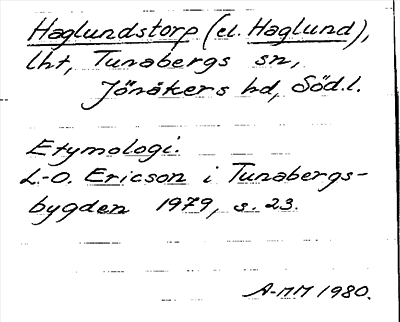 Haglundstorp (el. Haglund),
lht, Tunabergs sn,
Jönåkers hd, Söd.l.
Etymologi.
L.-O. Ericson i Tunabergs-
bygden 1979, s. 23.
A-MM 1980.